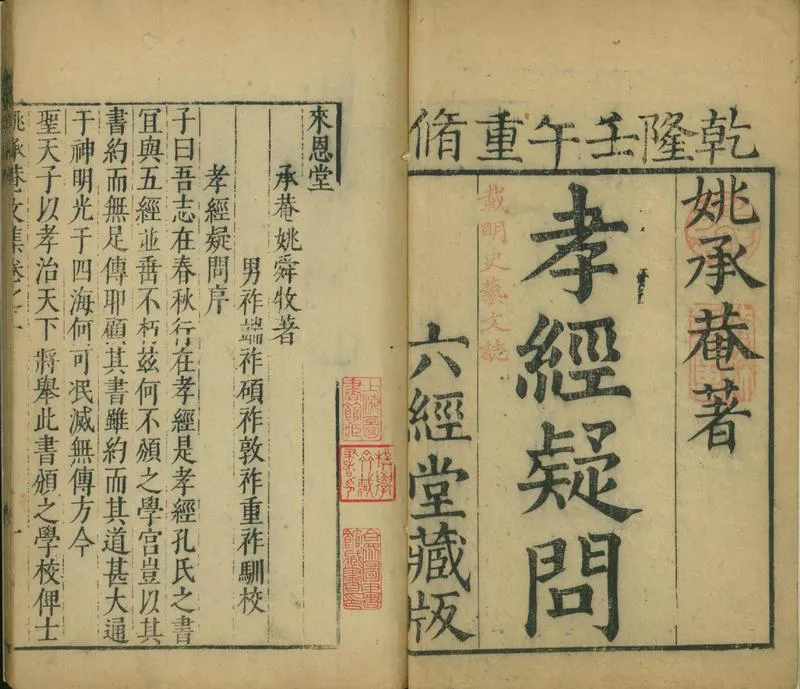 乾隆壬午重脩
姚承菴著
孝經疑問
載明史藝文誌
六經堂藏版
來恩堂
承菴姚舜牧著
男祚端祚碩祚敦祚重祚馴校
孝經疑問序
子曰吾志在春秋行在孝經是孝經孔氏之書
宜與五經並垂不朽茲何不頒之學宮豈以其
書約而無足傳耶顧其書雖約而其道甚大通
于神明光于四海何可泯滅無傳方今
聖天子以孝治天下將舉此書頒之學校俾士
姚承菴文集卷之一
上海圖書館藏